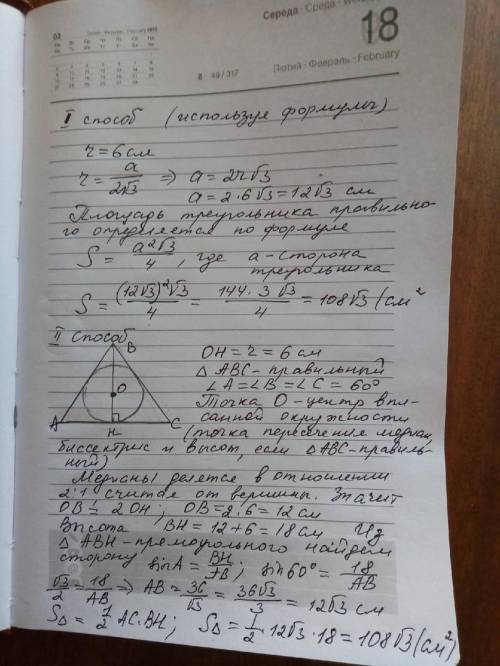 Середа · Среда · We
03
Лютий · Февраль · February
18
8 · 49 / 317
I способ (используя формулы)
r = 6 см
r = a/(2√3) ⇒ a = 2r√3
a = 2·6√3 = 12√3 см
Площадь треугольника правильно-
го определяется по формуле
S = a²√3/4, где a - сторона
треугольника
S = (12√3)²√3/4 = 144·3√3/4 = 108√3 (см²
II Способ
OH = r = 6 см
△ ABC - правильный
∠A = ∠B = ∠C = 60°
Точка O - центр впи-
санной окружности
(точка пересечения медиан,
биссектрис и высот, если △ABC - правиль-
ный)
B
O
A
H
C
Медианы делятся в отношении
2:1 считая от вершины. Значит
OB = 2OH; OB = 2·6 = 12 см
Высота BH = 12 + 6 = 18 см Из
△ ABH - прямоугольного найдем
сторону sin A = BH/AB; sin 60° = 18/AB
√3/2 = 18/AB ⇒ AB = 36/√3 = 36√3/3 = 12√3 см
S△ = 1/2 AC·BH; S△ = 1/2·12√3·18 = 108√3 (см²)